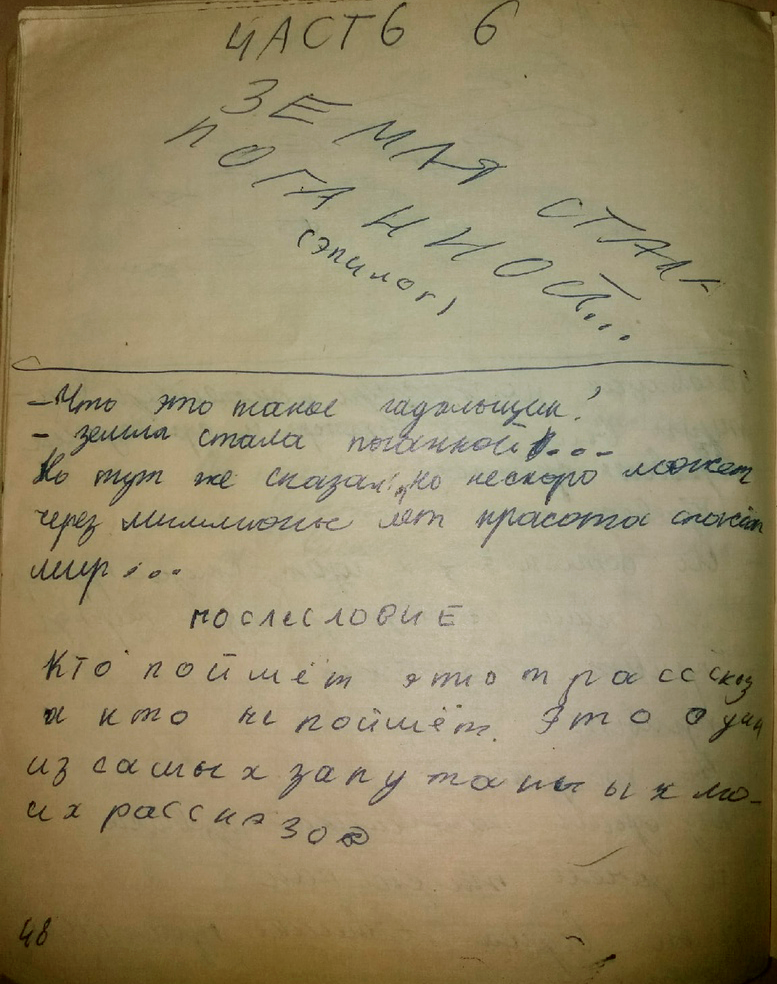 ЧАСТЬ 6
ЗЕМЛЯ СТАЛ
ПОГАННОЙ...
(эпилог)
- Что это такое
- земля стала поганной...
Но тут же сказал: „но нескоро может
через миллионы лет красота спасёт
мир...
ПОСЛЕСЛОВИЕ
Кто поймёт этот рассказ
а кто не поймёт. Это один
из самых запутаных мо-
их рассказов
48